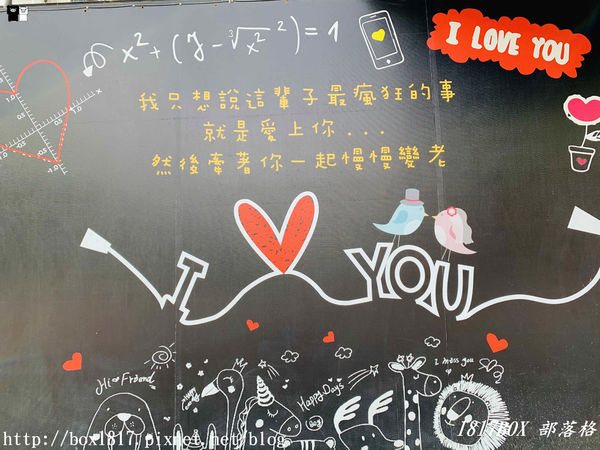 x² + (y - ∛x² ²) = 1
I LOVE YOU
我只想說這輩子最瘋狂的事
就是愛上你...
然後牽著你一起慢慢變老
I YOU
I miss you
Hi Friend
Happy Days
1817BOX 部落格
http://box1817.pixnet.net/blog